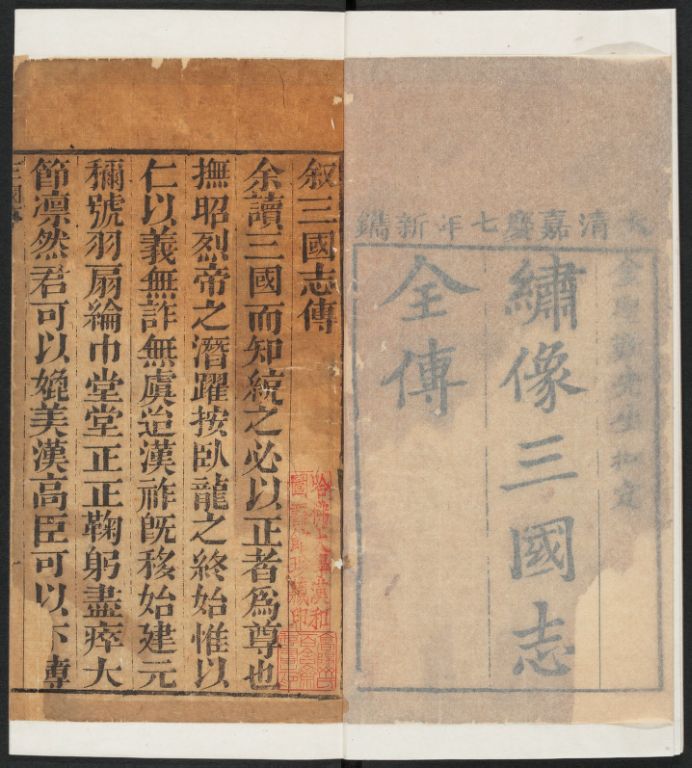 大清嘉慶七年新鐫
金聖歎先生批定
繡像三國志
全傳
叙三國志傳
余讀三國而知統之必以正者爲尊也
撫昭烈帝之潛躍按臥龍之終始惟以
仁以義無詐無虞迨漢祚旣移始建元
稱號羽扇綸巾堂堂正正鞠躬盡瘁大
節凛然君可以媲美漢高臣可以下傳
哈佛大學漢和
圖書館珍藏印